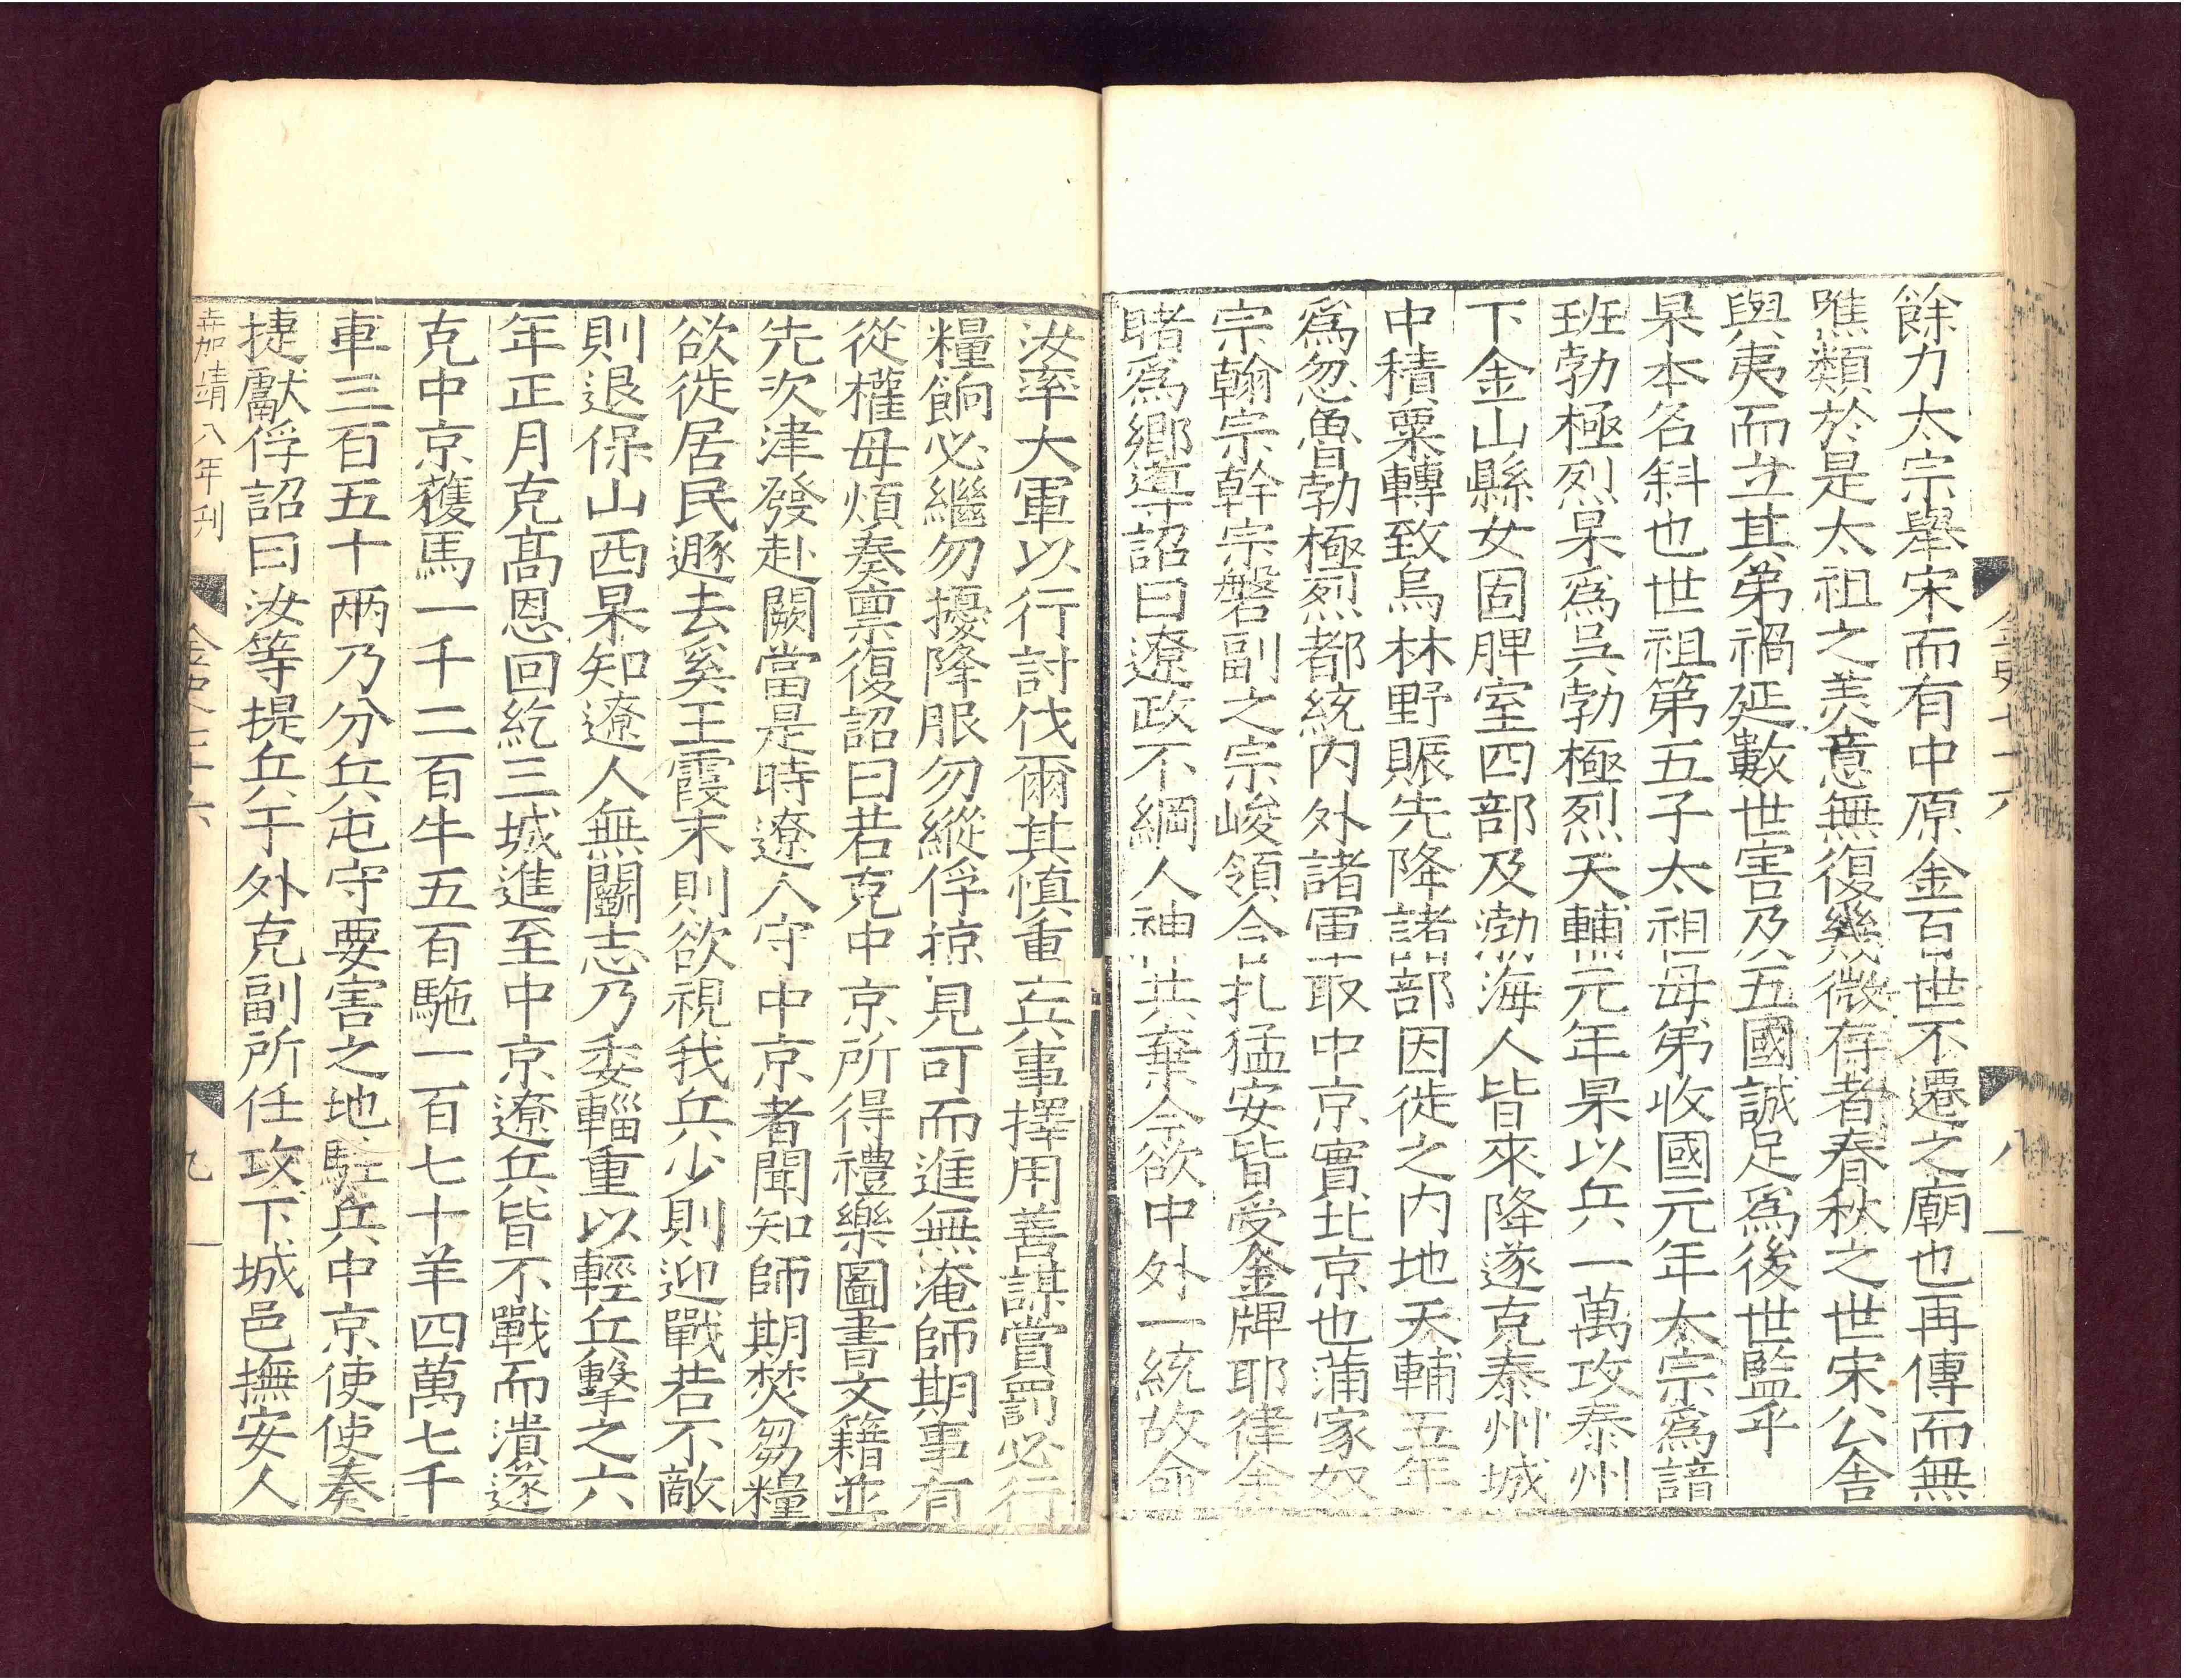 餘力太宗舉宋而有中原金百世不遷之廟也再傳而無
噍類於是太祖之美意無復幾微存者春秋之世宋公舍
與夷而立其弟禍延數世害及五國誠足爲後世監乎
杲本名斜也世祖第五子太祖母弟收國元年太宗爲諳
班勃極烈杲爲吴勃極烈天輔元年杲以兵一萬攻泰州
下金山縣女固脾室四部及渤海人皆來降遂克泰州城
中積粟轉致烏林野賑先降諸部因徙之内地天輔五年
爲忽魯勃極烈都統内外諸軍取中京實北京也蒲家奴
宗翰宗幹宗磐副之宗峻領合扎猛安皆受金牌耶律余
睹爲鄉導詔曰遼政不綱人神共棄今欲中外一統故命
金史七十六
八
汝率大軍以行討伐爾其慎重兵事擇用善謀賞罰必行
糧餉必繼勿擾降服勿縱俘掠見可而進無淹師期事有
從權毋煩奏禀復詔曰若克中京所得禮樂圖書文籍並
先次津發赴闕當是時遼人守中京者聞知師期焚芻糧
欲徙居民遯去奚王霞末則欲視我兵少則迎戰若不敵
則退保山西杲知遼人無鬭志乃委輜重以輕兵擊之六
年正月克高恩回紇三城進至中京遼兵皆不戰而潰遂
克中京獲馬一千二百牛五百駞一百七十羊四萬七千
車三百五十兩乃分兵屯守要害之地駐兵中京使使奏
捷獻俘詔曰汝等提兵于外克副所任攻下城邑撫安人
嘉靖八年刊
金史七十六
九